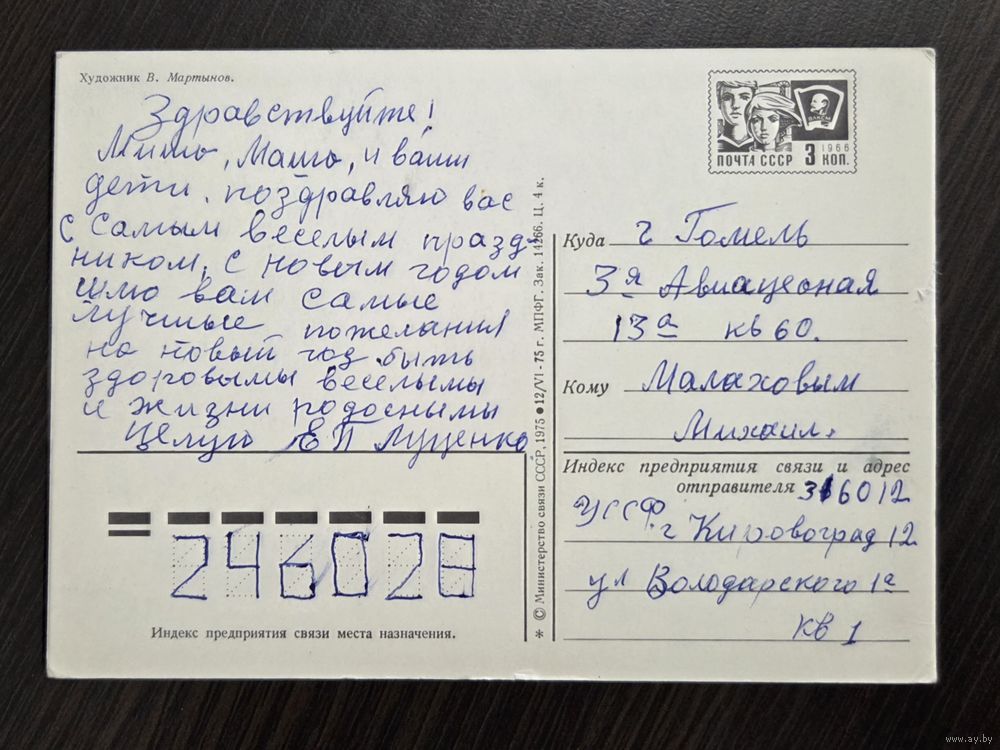 Художник В. Мартынов.
Здравствуйте!
Миша, Маша, и ваши
дети. поздравляю вас
с самым веселым празд-
ником, с новым годом
шлю вам самые
лучшые пожелания
на новый год быть
здоровымы веселымы
и жизни радоснымы
Целую ЕП Луценко
ВЛКСМ
1966
ПОЧТА СССР 3 КОП.
Куда г Гомель
3я Авиацеоная
13а кв 60.
Кому Малаховым
Михаил.
Индекс предприятия связи и адрес
отправителя 316012
УССР
г Кировоград 12
ул Володарского 1а
кв 1
246028
Индекс предприятия связи места назначения.
* © Министерство связи СССР, 1975 ● 12/VI-75 г. МПФГ. Зак. 14266. Ц. 4 к.
www.ay.by